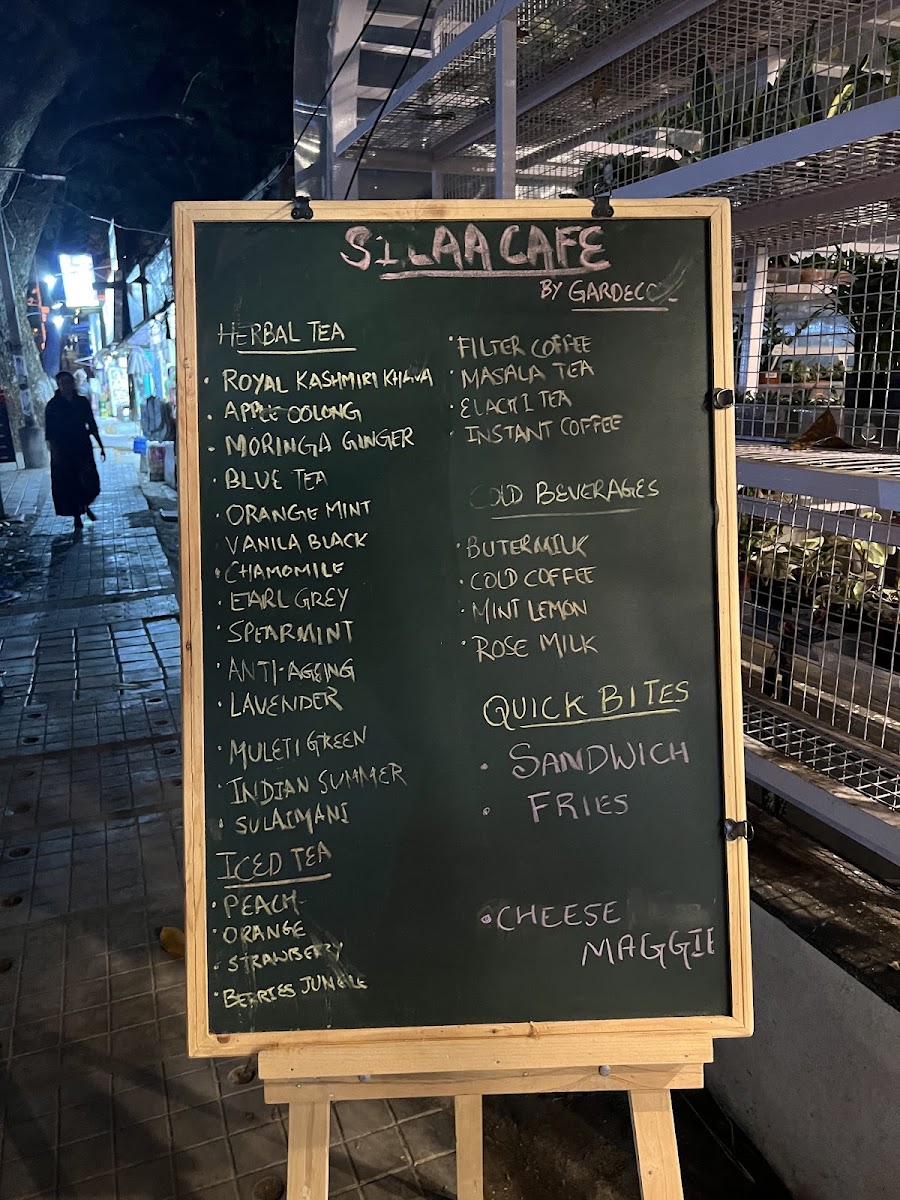 SILAA CAFE
BY GARDECO
HERBAL TEA
• ROYAL KASHMIRI KHAVA
• APPLE OOLONG
• MORINGA GINGER
• BLUE TEA
• ORANGE MINT
• VANILA BLACK
• CHAMOMILE
• EARL GREY
• SPEARMINT
• ANTI-AGEING
• LAVENDER
• MULETI GREEN
• INDIAN SUMMER
• SULAIMANI
ICED TEA
• PEACH
• ORANGE
• STRAWBERY
• BERRIES JUNGLE
• FILTER COFFEE
• MASALA TEA
• ELACHI TEA
• INSTANT COFFEE
COLD BEVERAGES
• BUTERMILK
• COLD COFFEE
• MINT LEMON
• ROSE MILK
QUICK BITES
• SANDWICH
• FRIES
• CHEESE
MAGGIE